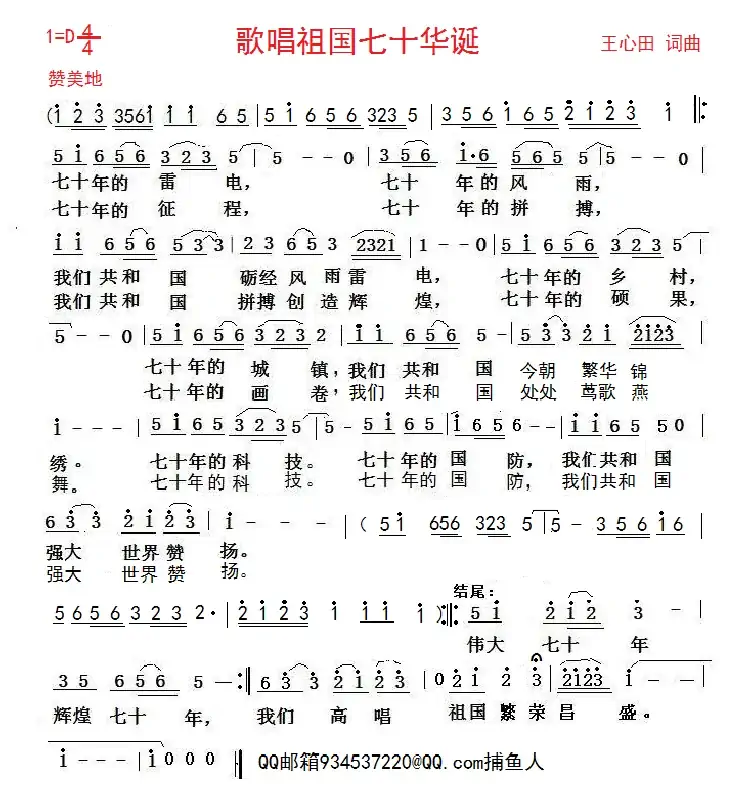 1=D 4/4 歌唱祖国七十华诞 王心田 词曲
赞美地
(i 2 3 3561 i i 6 5 | 5 i 6 5 6 5 323 5 | 3 5 6 i 6 5 2 i 2 3 i |:
5 i 6 5 6 3 2 3 5 | 5 - - 0 | 3 5 6 i·6 5 6 5 5 | 5 - - 0 |
七十年的 雷 电, 七十 年的风 雨,
七十年的 征 程, 七十 年的拼 搏,
i i 6 5 6 5 3 3 | 2 3 6 5 3 2321 | 1 - - 0 | 5 i 6 5 6 3 2 3 5 |
我们共和 国 砺经风雨雷 电, 七十年的乡 村,
我们共和 国 拼搏创造辉 煌, 七十年的硕 果,
5 - - 0 | 5 i 6 5 6 3 2 3 2 | i i 6 5 6 5 - | 5 3 3 2 i 2123 |
七十年的城 镇,我们 共和 国 今朝 繁华 锦
七十年的画 卷,我们 共和 国 处处 莺歌 燕
i - - - | 5 i 6 5 3 2 3 5 | 5 - 5 i 6 5 | i 6 5 6 - - | i i 6 5 5 0 |
绣。 七十年的科 技。 七十年的国 防, 我们共和国
舞。 七十年的科 技。 七十年的国 防, 我们共和国
6 3 3 2 i 2 3 | i - - | ( 5 i 656 323 5 | 5 - 3 5 6 i 6 |
强大 世界赞 扬。
强大 世界赞 扬。
结尾:
5 6 5 6 3 2 3 2· | 2 i 2 3 i i i i ) :|: 5 i 2 i 2 3 - |
伟大 七十 年
3 5 6 5 6 5 - :| 6 3 3 2 i 2 3 | 0 2 i 2 3 | 2 i 2 3 i - |
辉煌 七十 年, 我们 高 唱 祖国繁荣昌 盛。
i - - - | i 0 0 0 | QQ邮箱934537220@QQ.com捕鱼人